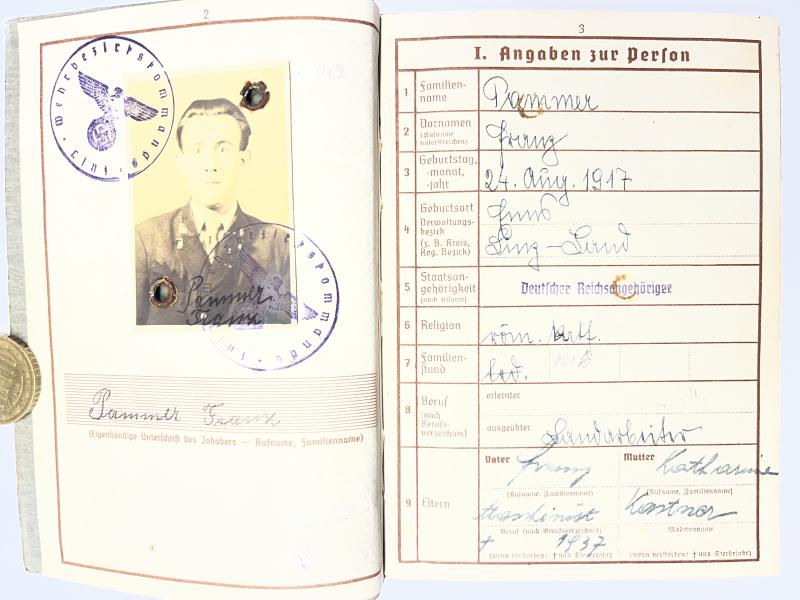 2
Wehrbezirkskommando
Linz
Pammer
Franz
Pammer Franz
(Eigenhändige Unterschrift des Inhabers — Rufname, Familienname)
3
I. Angaben zur Person
1 Familien-name Pammer
2 Vornamen (Rufname unterstreichen) Franz
3 Geburtstag, -monat, -jahr 24. Aug. 1917
4 Geburtsort Enns
Verwaltungsbezirk (z. B. Kreis, Reg. Bezirk) Linz-Land
5 Staatsan-gehörigkeit (auch frühere) Deutscher Reichsangehöriger
6 Religion röm. kath.
7 Familien-stand led.
8 Beruf (nach Berufs-verzeichnis) erlernter
ausgeübter Landarbeiter
9 Eltern
Vater Franz Mutter Katharine
(Rufname, Familienname) (Rufname, Familienname)
Maschinist Kastner
Beruf (nach Berufsverzeichnis) Mädchenname
† 1937
(wenn verstorben: † und Sterbejahr) (wenn verstorben: † und Sterbejahr)